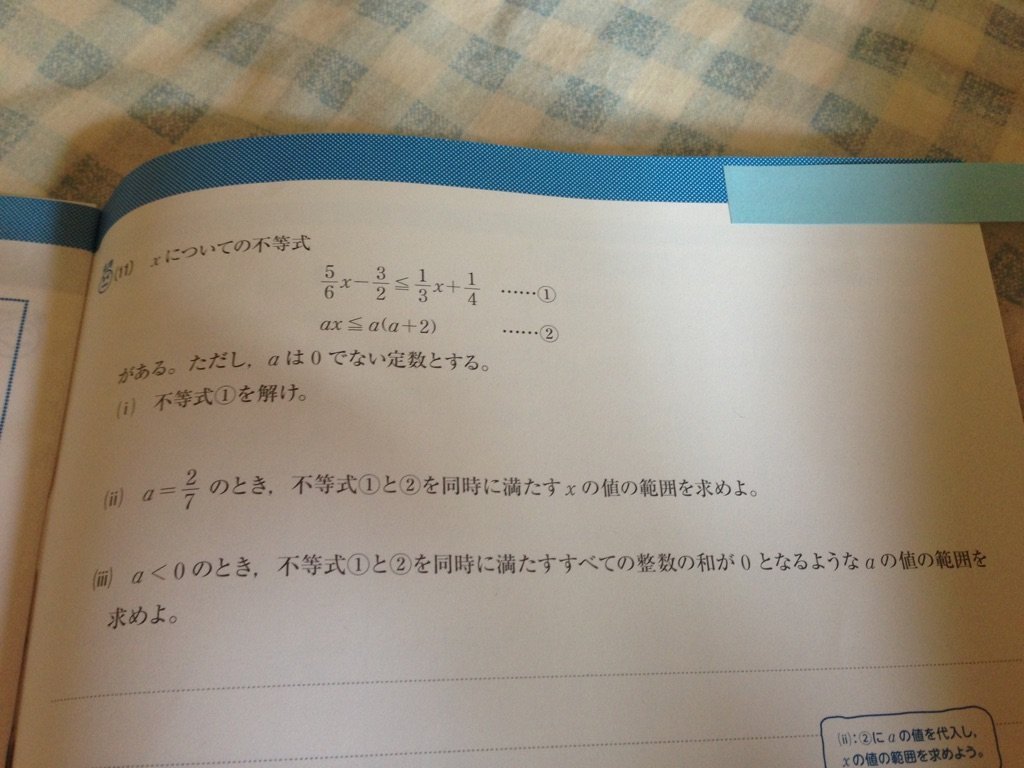 (11) xについての不等式
5/6 x − 3/2 ≦ 1/3 x + 1/4 ……①
ax ≦ a(a+2) ……②
がある。ただし，aは0でない定数とする。
(i) 不等式①を解け。
(ii) a = 2/7 のとき，不等式①と②を同時に満たすxの値の範囲を求めよ。
(iii) a < 0 のとき，不等式①と②を同時に満たすすべての整数の和が0となるようなaの値の範囲を
求めよ。
(ii)：②にaの値を代入し，
xの値の範囲を求めよう。